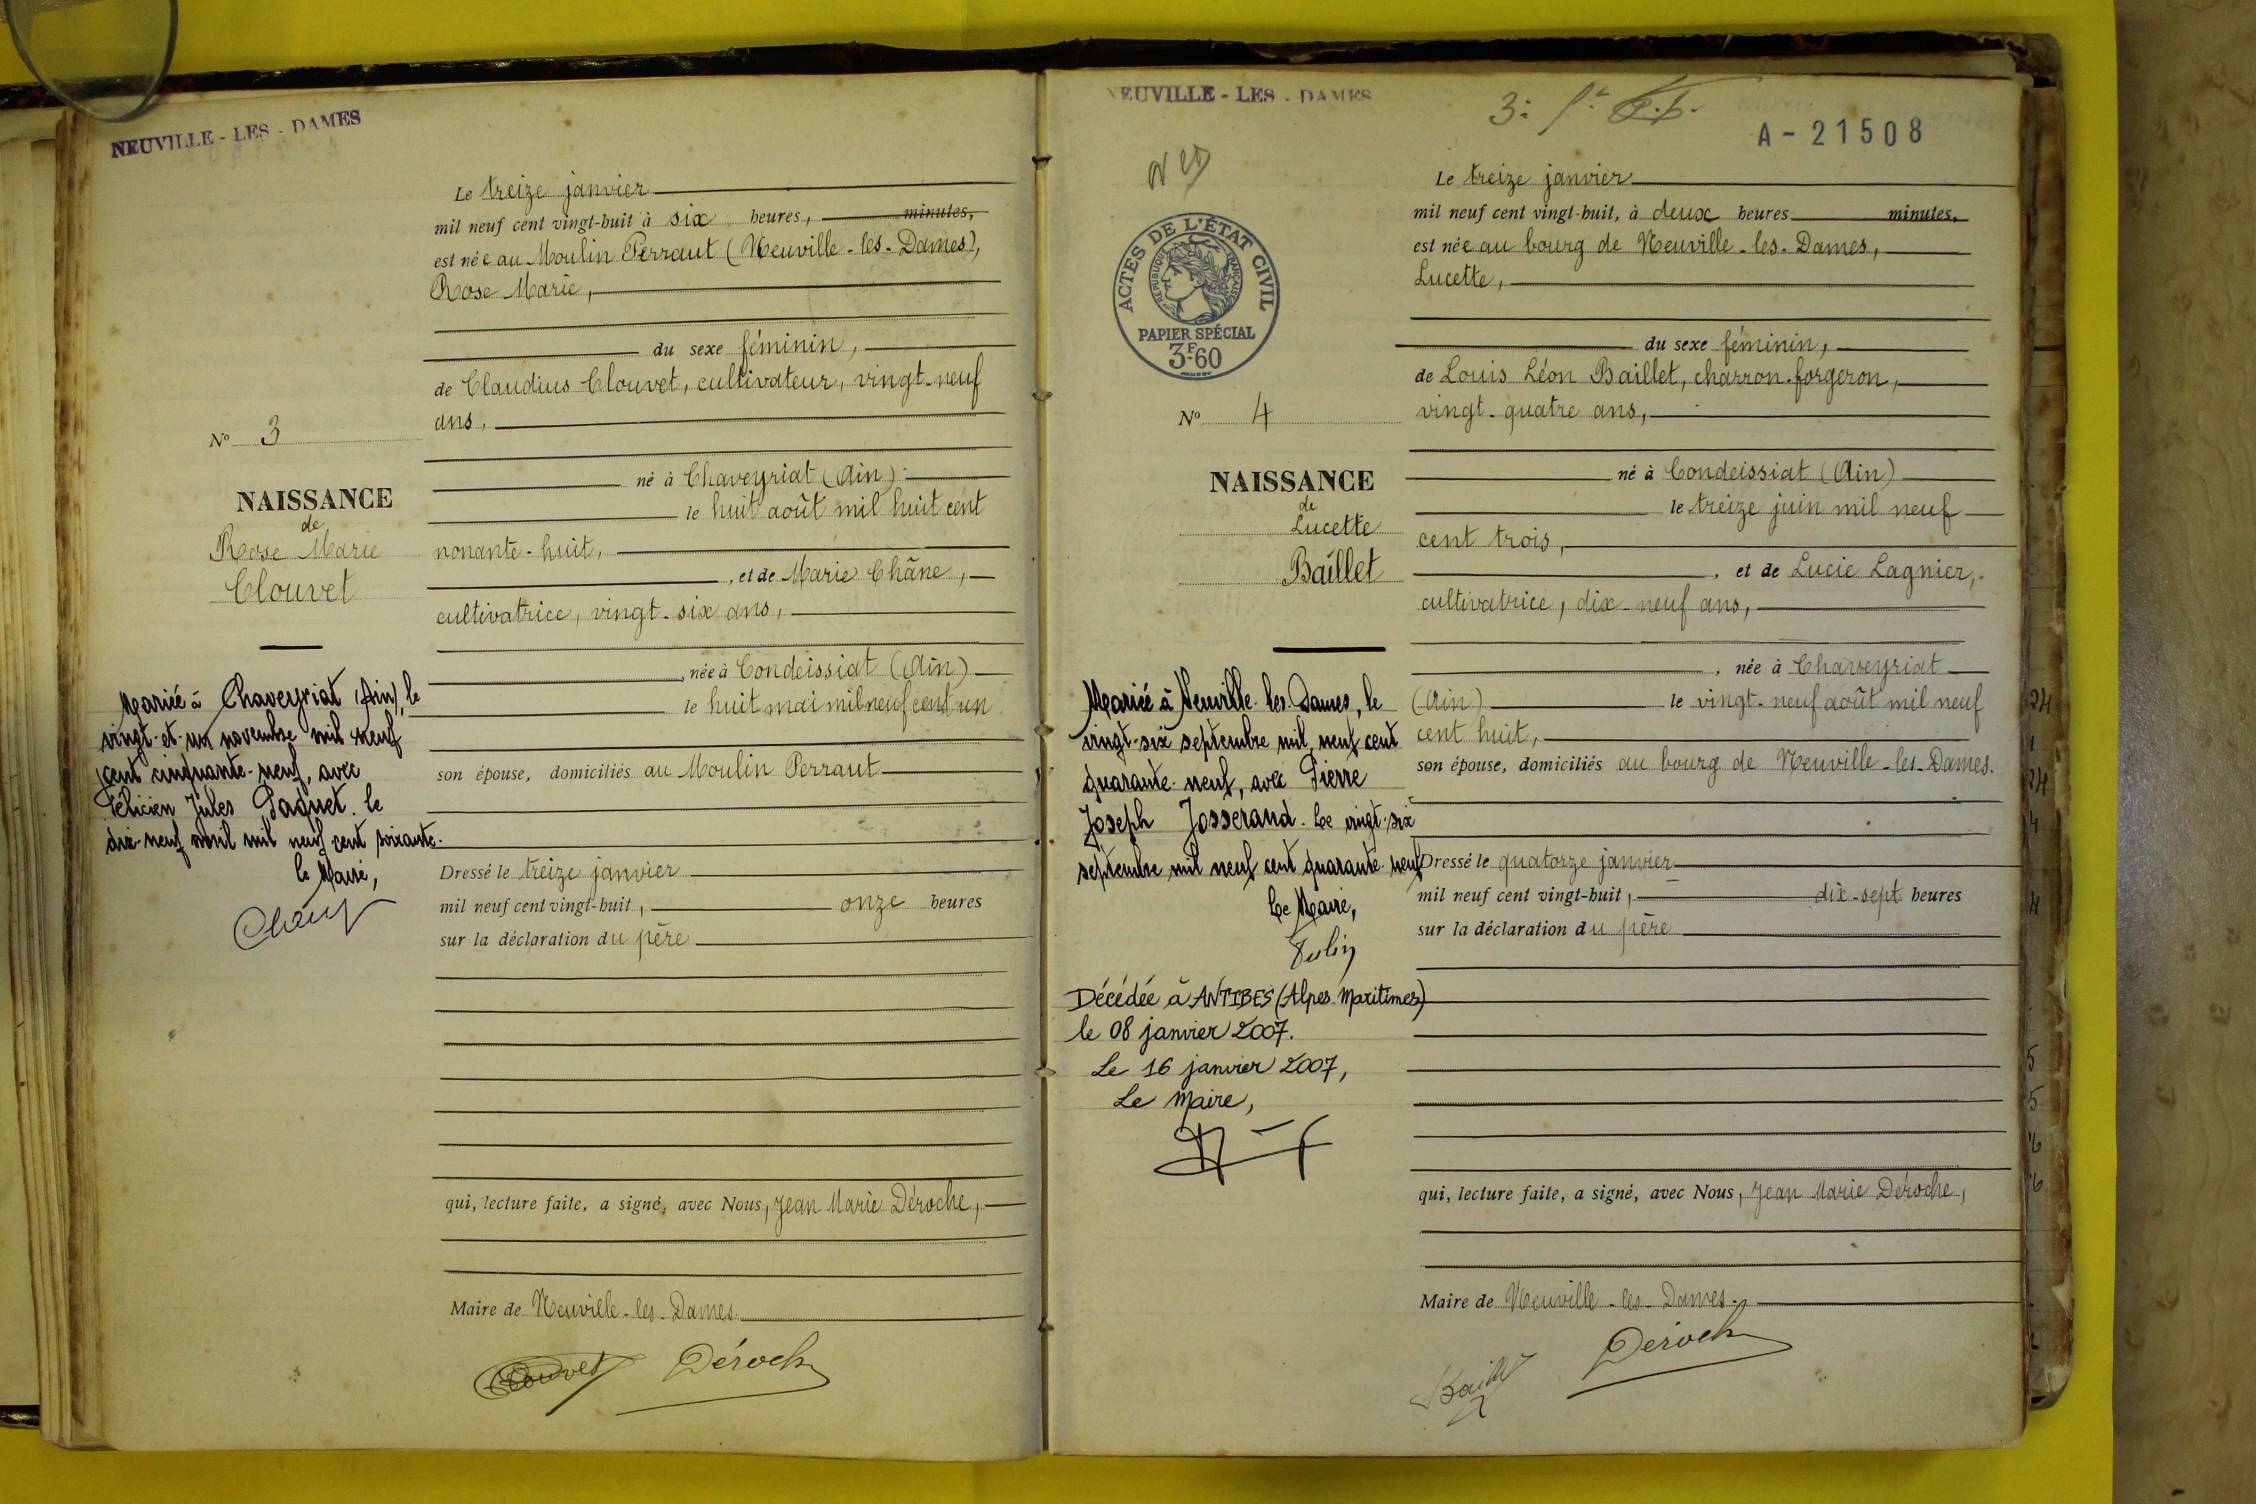 NEUVILLE - LES - DAMES
Le treize janvier
mil neuf cent vingt-huit à six heures, minutes,
est née au Moulin Perraut (Neuville-les-Dames),
Rose Marie,
du sexe féminin,
de Claudius Clouvet, cultivateur, vingt-neuf
ans,
né à Chaveyriat (Ain)
le huit août mil huit cent
nonante-huit,
, et de Marie Châne,
cultivatrice, vingt-six ans,
, née à Condeissiat (Ain)
le huit mai mil neuf cent un
son épouse, domiciliés au Moulin Perraut
Dressé le treize janvier
mil neuf cent vingt-huit, onze heures
sur la déclaration du père
qui, lecture faite, a signé, avec Nous, Jean Marie Déroche,
Maire de Neuville-les-Dames.
Clouvet Déroche
No 3
NAISSANCE
de
Rose Marie
Clouvet
Mariée à Chaveyriat (Ain), le
vingt-et-un novembre mil neuf
cent cinquante-neuf, avec
Félicien Jules Paquet. le
dix-neuf avril mil neuf cent soixante.
le Maire,
NEUVILLE - LES - DAMES
A - 21508
Le treize janvier
mil neuf cent vingt-huit, à deux heures minutes,
est née au bourg de Neuville-les-Dames,
Lucette,
du sexe féminin,
de Louis Léon Baillet, charron-forgeron,
vingt-quatre ans,
né à Condeissiat (Ain)
le treize juin mil neuf
cent trois,
, et de Lucie Lagnier,
cultivatrice, dix-neuf ans,
, née à Chaveyriat
(Ain) le vingt-neuf août mil neuf
cent huit,
son épouse, domiciliés au bourg de Neuville-les-Dames.
Dressé le quatorze janvier
mil neuf cent vingt-huit, dix-sept heures
sur la déclaration du père
qui, lecture faite, a signé, avec Nous, Jean Marie Déroche,
Maire de Neuville-les-Dames.
Déroche
ACTES DE L'ÉTAT CIVIL
RÉPUBLIQUE FRANÇAISE
PAPIER SPÉCIAL
3F60
No 4
NAISSANCE
de
Lucette
Baillet
Mariée à Neuville-les-Dames, le
vingt-six septembre mil neuf cent
quarante-neuf, avec Pierre
Joseph Josserand. Le vingt-six
septembre mil neuf cent quarante-neuf
Le Maire,
Décédée à ANTIBES (Alpes Maritimes)
le 08 janvier 2007.
Le 16 janvier 2007,
Le Maire,